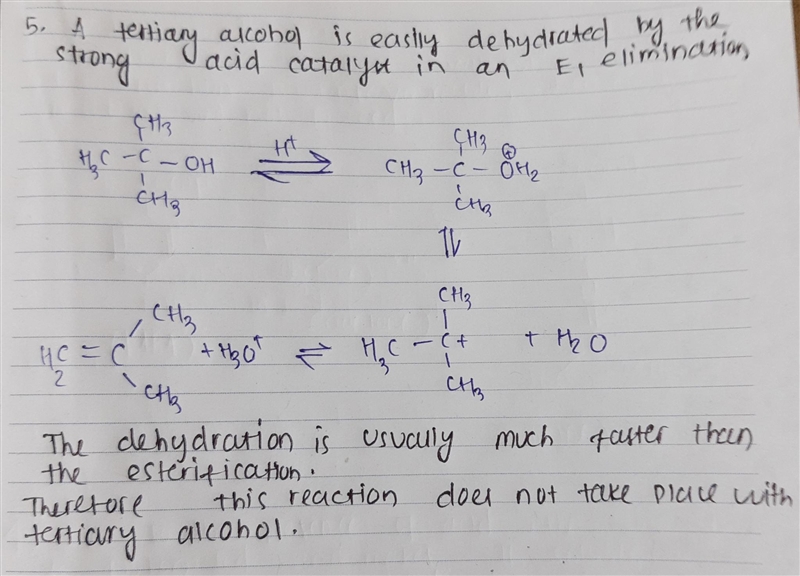 5. A tertiary alcohol is easily dehydrated by the
strong acid catalyst in an E1 elimination
CH3
H3C - C - OH
CH3
H+
⇌
CH3
CH3 - C - OH2
⊕
CH3
⇌
H2C = C
CH3
CH3
+ H3O+
⇌
CH3
H3C - C+
CH3
+ H2O
The dehydration is usually much faster than
the esterification.
Therefore this reaction does not take place with
tertiary alcohol.